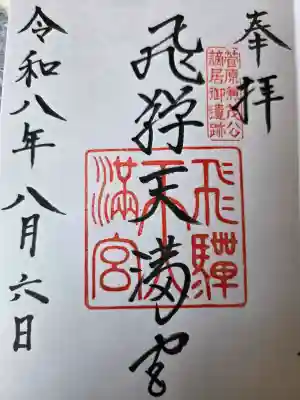 奉拝
菅原兼茂公
謫居御遺跡
飛騨天満宮
飛騨
天満宮
令和八年八月六日